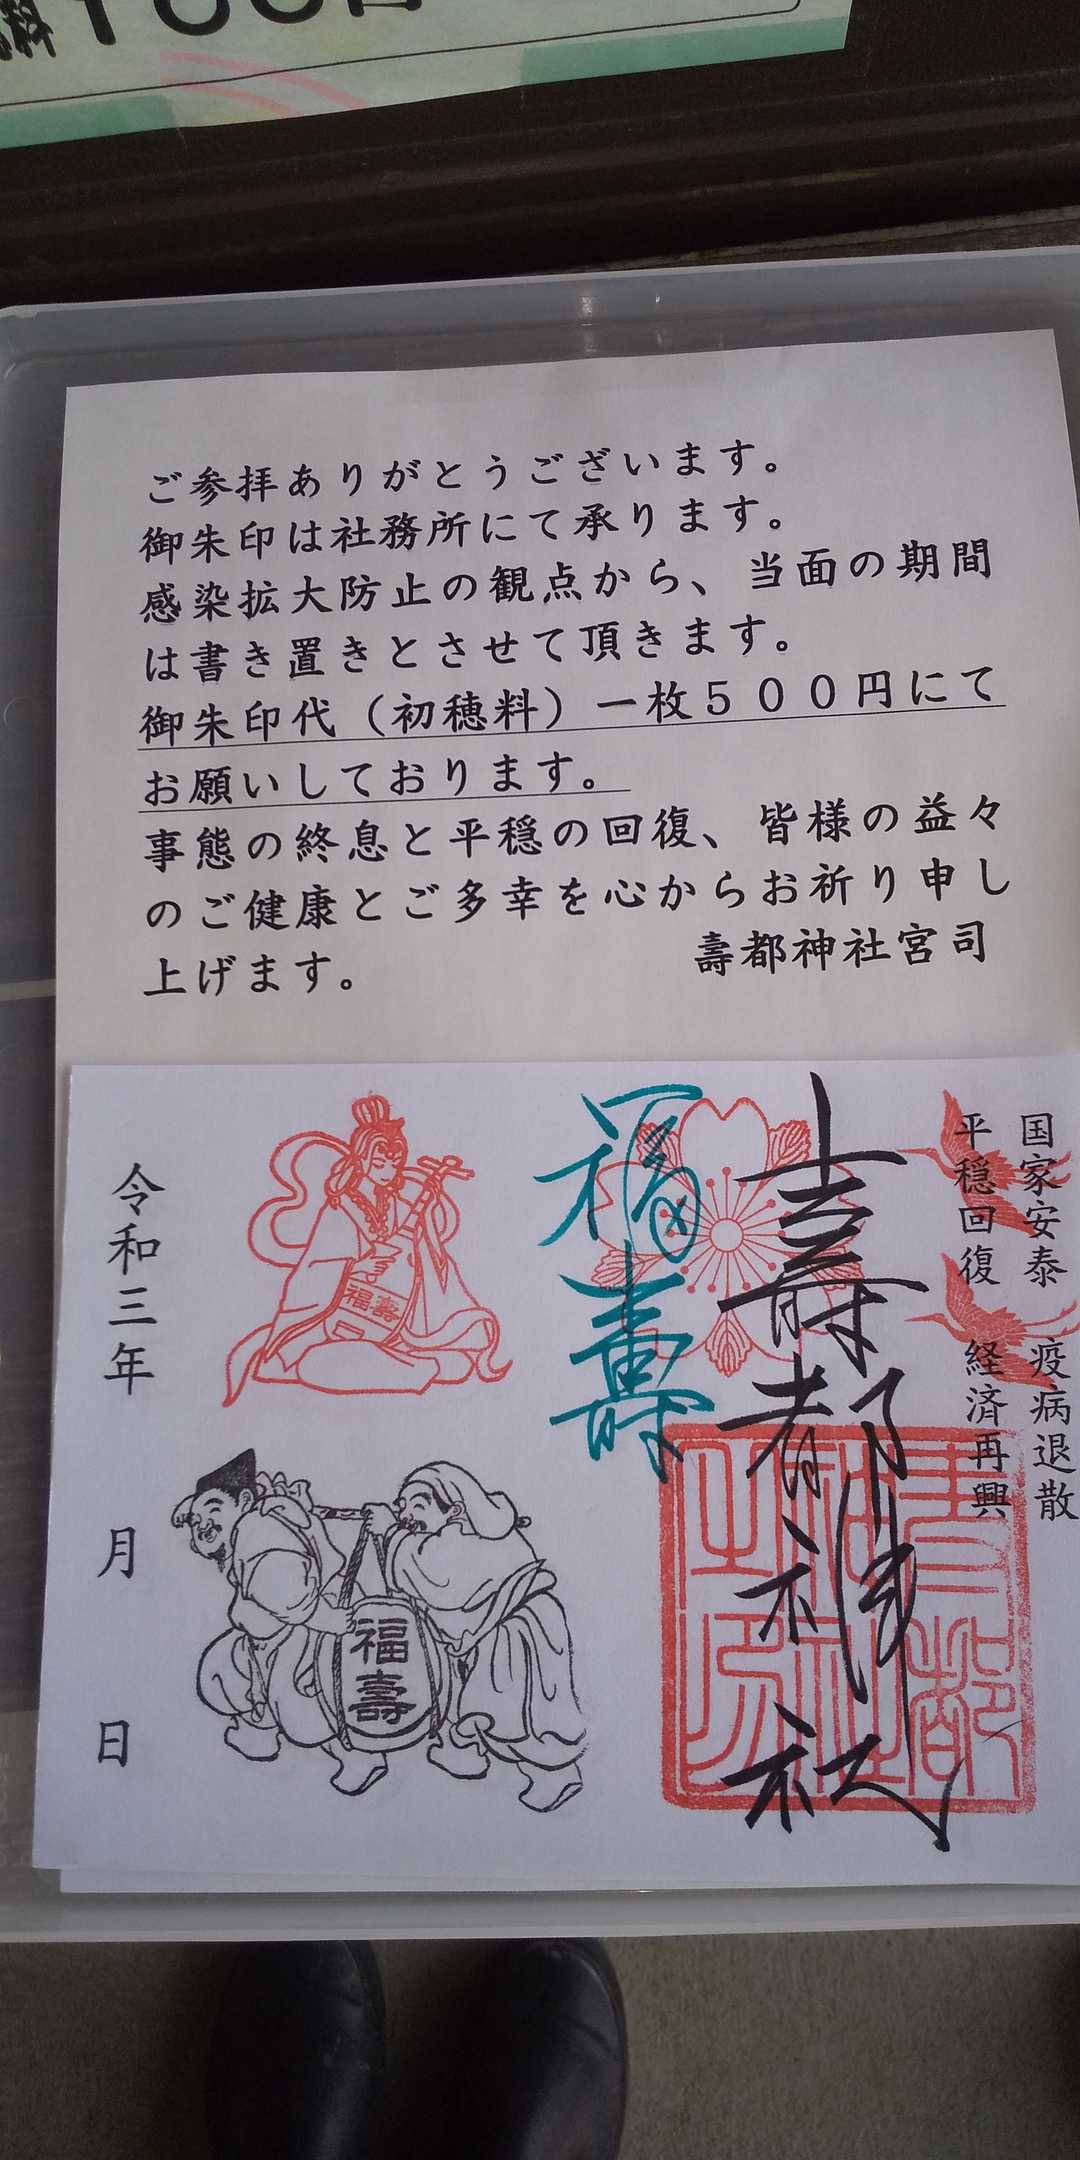 料100円
ご参拝ありがとうございます。
御朱印は社務所にて承ります。
感染拡大防止の観点から、当面の期間
は書き置きとさせて頂きます。
御朱印代（初穂料）一枚５００円にて
お願いしております。
事態の終息と平穏の回復、皆様の益々
のご健康とご多幸を心からお祈り申し
上げます。
壽都神社宮司
国家安泰 疫病退散
平穏回復 経済再興
壽都神社
福壽
壽都
神社
之印
福壽
福壽
令和三年 月 日